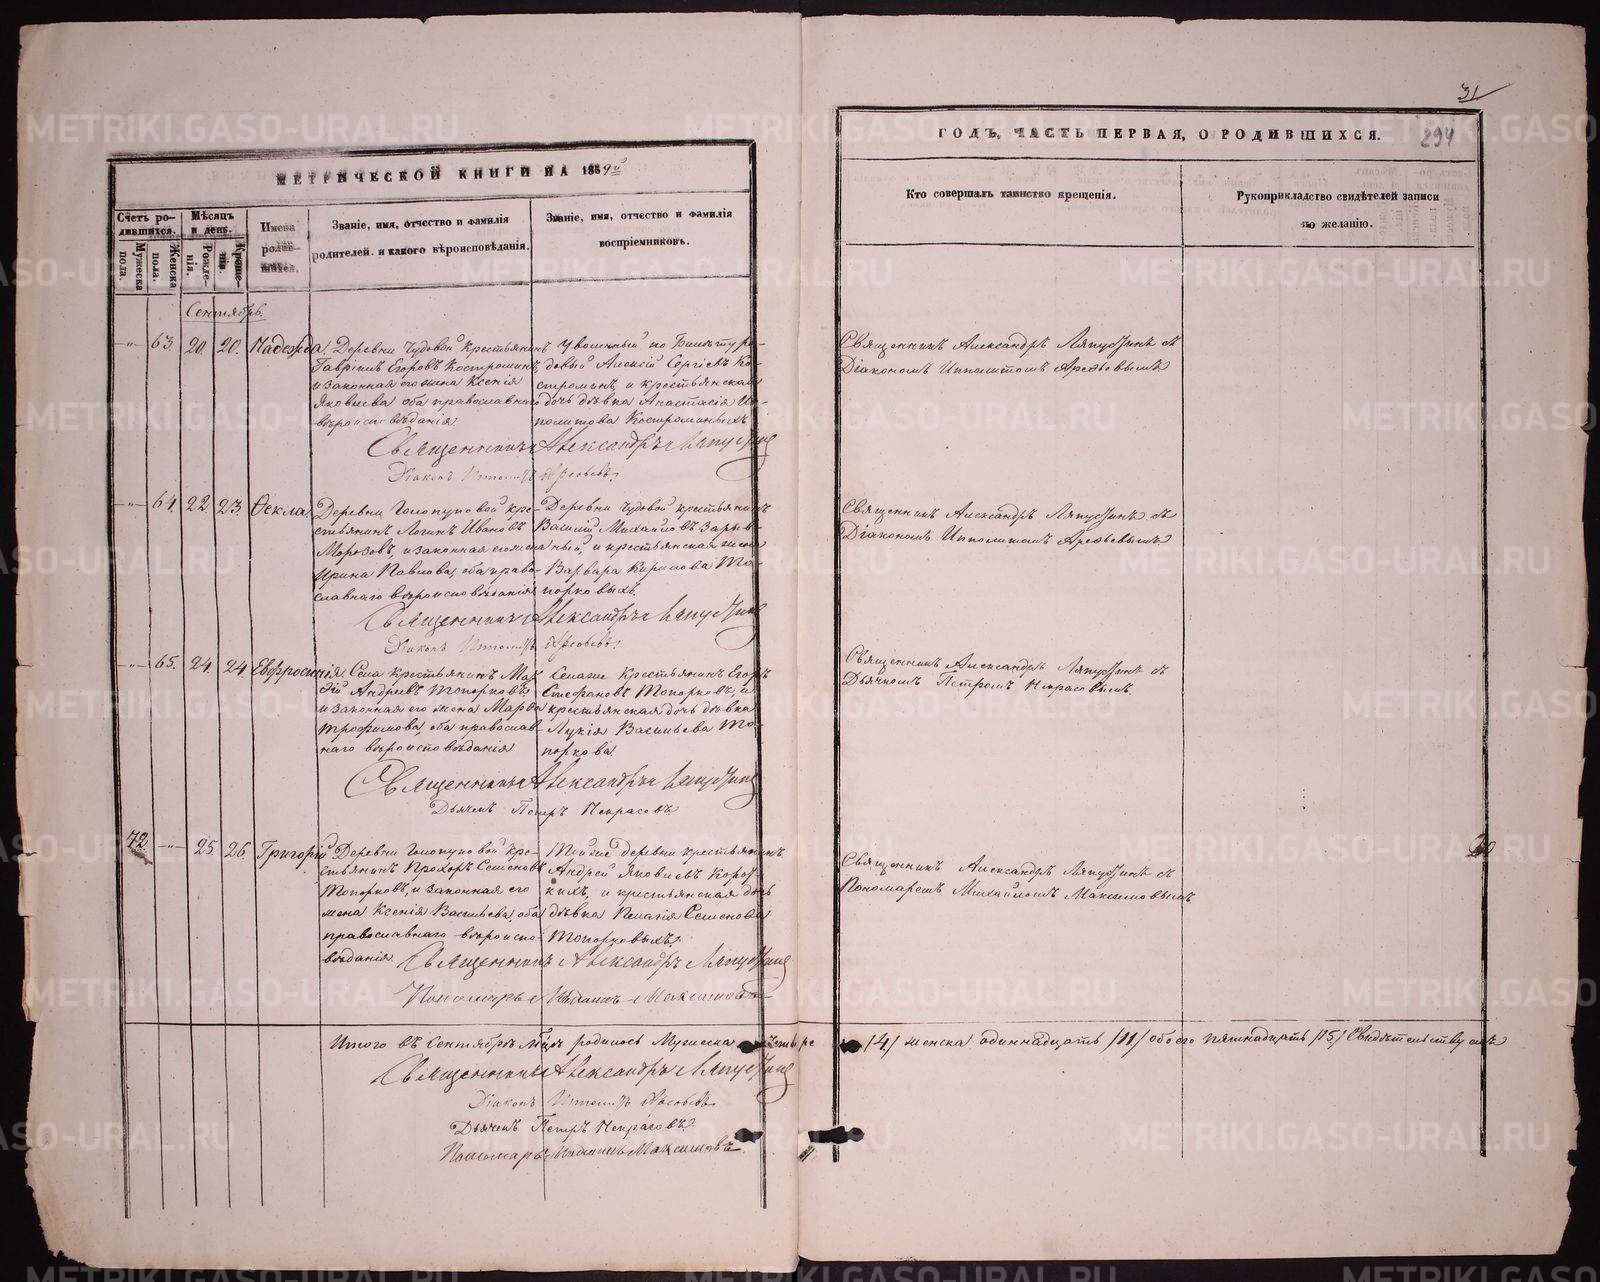 МЕТРИЧЕСКОЙ КНИГИ НА 1859й
Счетъ родившихся.
Мужеска пола.
Женска пола.
Мѣсяцъ и день.
Рожденія.
Крещенія.
Имена родившихся.
Званіе, имя, отчество и фамилія
родителей, и какого вѣроисповѣданія.
Званіе, имя, отчество и фамилія
воспріемниковъ.
Сентябрь.
63. 20. 20. Надежда.
Деревни Чудовой крестьянинъ
Гавріилъ Егоровъ Костроминъ,
и законная его жена Ксенія
Яковлева, оба православнаго
вѣроисповѣданія.
Уволенный по билету ря-
довый Алексій Сергіевъ Ко-
строминъ, и крестьянская
дочь дѣвка Анастасія Ип-
политова Костроминыхъ
Священникъ Александръ Ляпустинъ
Діаконъ Ипполитъ Арефьевъ.
64. 22. 23. Ѳекла.
Деревни Голопуповой кре-
стьянинъ Логинъ Ивановъ
Морозовъ, и законная его жена
Ирина Павлова, оба право-
славнаго вѣроисповѣданія
Деревни Чудовой крестьянинъ
Василій Михайловъ
и крестьянская жена
Варвара Кирилова То-
порковыхъ.
Священникъ Александръ Ляпустинъ
Діаконъ Ипполитъ Арефьевъ.
65. 24. 24. Евфросинія.
Села крестьянинъ
Андреевъ Топорковъ,
и законная его жена Марѳа
Трофимова, оба православ-
наго вѣроисповѣданія
Селаже крестьянинъ Егоръ
Стефановъ Топорковъ, и
крестьянская дочь дѣвка
Лукія Васильева То-
поркова.
Священникъ Александръ Ляпустинъ
Дьячекъ Петръ Некрасовъ
72. 25. 26. Григорій
Деревни Голопуповой кре-
стьянинъ Прохоръ Семеновъ
Топорковъ, и законная его
жена Ксенія Васильева, оба
православнаго вѣроиспо-
вѣданія
Тойже деревни крестьянинъ
Андрей Яковлевъ Корот-
кихъ, и крестьянская дочь
дѣвка Пелагія Семенова
Топорковыхъ.
Священникъ Александръ Ляпустинъ
Пономарь Михаилъ Максимовъ
Итого въ Сентябрѣ м-цѣ родилось Мужеска четыре
Священникъ Александръ Ляпустинъ
Діаконъ Ипполитъ Арефьевъ
Дьячекъ Петръ Некрасовъ
Пономарь Михаилъ Максимовъ
31
ГОДЪ, ЧАСТЬ ПЕРВАЯ, О РОДИВШИХСЯ.
294
Кто совершалъ таинство крещенія.
Рукоприкладство свидѣтелей записи
по желанію.
Священникъ Александръ Ляпустинъ съ
Діакономъ Ипполитомъ Арефьевымъ
Священникъ Александръ Ляпустинъ съ
Діакономъ Ипполитомъ Арефьевымъ
Священникъ Александръ Ляпустинъ съ
Дьячкомъ Петромъ Некрасовымъ
Священникъ Александръ Ляпустинъ съ
Пономаремъ Михайломъ Максимовымъ
/4/ женска одиннадцать /11/ обоего пятнадцать /15/ Свидѣтельствуемъ
METRIKI.GASO-URAL.RU